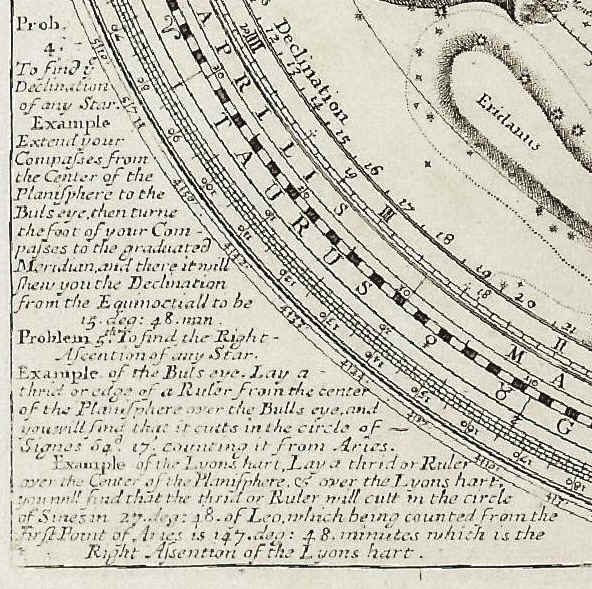 Prob.
4.
To find yͤ
Declination
of any Star.
Example
Extend your
Compasses from
the Center of the
Planisphere to the
Buls eye, then turne
the foot of your Com-
passes to the graduated
Meridian, and there it will
shew you the Declination
from the Equinoctiall to be
15. deg: 48. min.
Problem 5th. To find the Right-
Ascention of any Star.
Example of the Buls eye. Lay a-
thrid or edge of a Ruler from the center
of the Planisphere over the Bulls eye, and
you will find that it cutts in the circle of —
Signes 64d. 17. counting it from Aries.
Example of the Lyons hart, Lay a thrid or Ruler
over the Center of the Planisphere, & over the Lyons hart,
you will find that the thrid or Ruler will cutt in the circle
of Sines in 27. deg: 48. of Leo, which being counted from the
first Point of Aries is 147. deg: 48. minutes which is the
Right Assention of the Lyons hart.
APRILLIS
TAURUS
MA
G
Declination
12
13
14
15
16
17
18
19
20
21
III
II
Eridanus